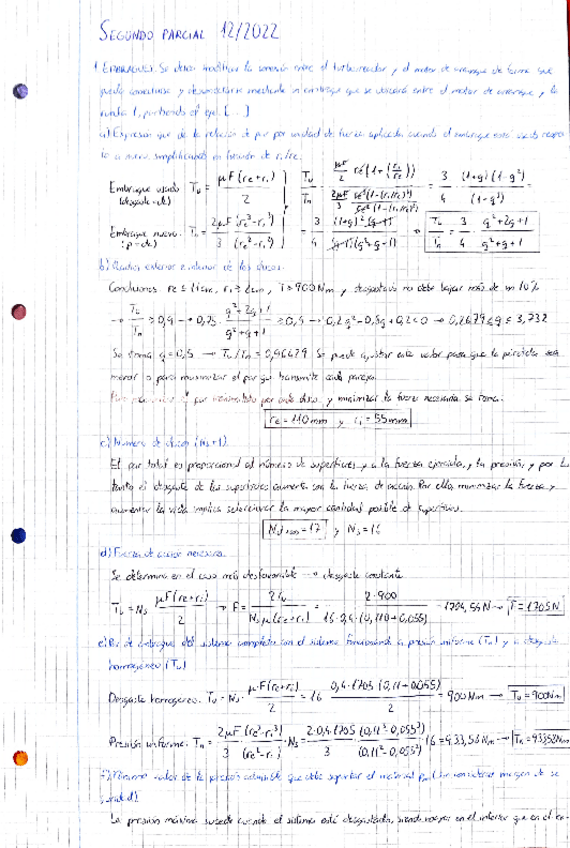 SEGUNDO PARCIAL 12/2022
1. EMBRAGUE). Se desea modificar la conexión entre el turborreactor y el motor de arranque de forma que
pueda conectarse y desconectarse mediante un embrague que se ubicará entre el motor de arranque y la
rueda 1, partiendo del ejer. [...]
a) Expresión que da la relación de par por unidad de fuerza aplicada cuando el embrague está usado respec
to a nuevo, simplificando en función de ri/re.
Embrague usado (desgaste cte) Tu = μF(re+ri)/2
Embrague nuevo (p=cte) Tn = 2μF/3 (re³-ri³)/(re²-ri²)
Tu/Tn = 3/4 (1+q)(1-q²)/(1-q³) =
= 3/4 (1+q)²(q-1)/(q-1)(q²+q+1) → Tu/Tn = 3/4 q²+2q+1/q²+q+1
b) Radios exterior e interior de los discos.
Condiciones: re ≤ 11cm, ri ≥ 2cm, T=900Nm y desgastado no debe bajar más de un 10%
→ Tu/Tn ≥ 0,9 → 0,75 · q²+2q+1/q²+q+1 ≥ 0,9 → 0,2679 ≤ q ≤ 3,732
Se toma q=0,5 → Tu/Tn = 0,96429. Se puede ajustar este valor para que la pérdida sea
menor o para maximizar el par que transmite cada pareja.
par transmitido por cada disco y minimizar la fuerza necesaria se toma:
re = 110mm y ri = 55mm
c) Número de discos (Ns+1).
El par total es proporcional al número de superficies y a la fuerza ejercida, y la presión, y por lo
tanto el desgaste de las superficies aumenta con la fuerza de acción. Por ello, minimizar la fuerza y
aumentar la vida implica seleccionar la mayor cantidad posible de superficies.
= 17 y Ns = 16
d) Fuerza de acción necesaria.
Se determina en el caso más desfavorable → desgaste constante
Tu = Ns μF(re+ri)/2 → F = 2Tu/Ns μ(re+ri) = 2·900/16·0,4·(0,110+0,055) = 1704,54N → F=1705N
e) Par de embrague del sistema completo con el sistema funcionando a presión uniforme (Tn) y a desgaste
homogéneo (Tu)
Desgaste homogéneo. Tu = Ns · μF(re+ri)/2 = 16 · 0,4·1705(0,11+0,055)/2 = 900Nm → Tu=900Nm
Presión uniforme. Tn = 2μF/3 (re³-ri³)/(re²-ri²) · Ns = 2·0,4·1705/3 (0,11³-0,055³)/(0,11²-0,055²) 16 = 933,58Nm → Tn=933,58Nm
f) Mínimo valor de la presión admisible que debe soportar el material (sin considerar margen de se
guridad)
La presión máxima sucede cuando el sistema está desgastado, siendo mayor en el interior que en el ex-